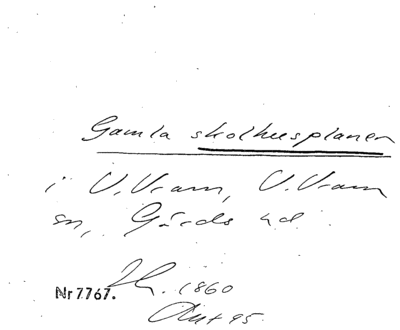 Gamla skolhusplanen
i V. Vram, V. Vram
sn, Gärds hd.
Nr 7767. 1860
95